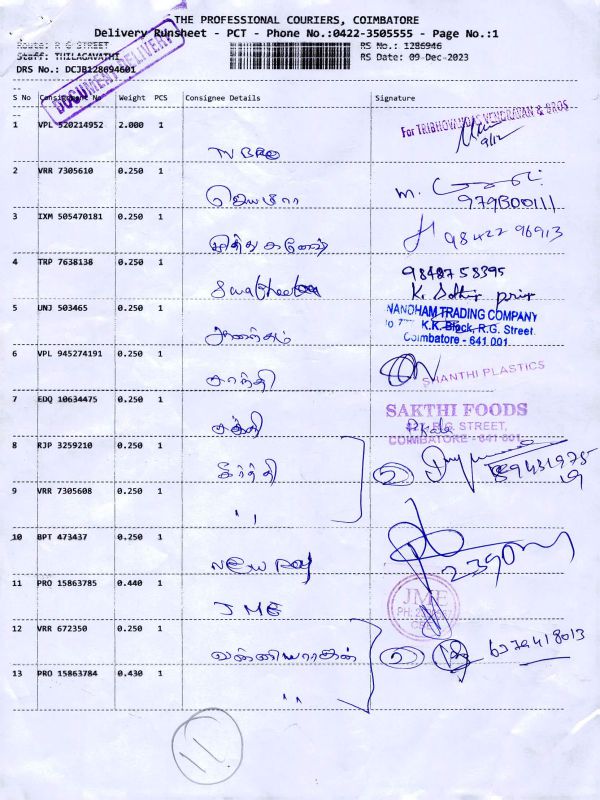 THE PROFESSIONAL COURIERS, COIMBATORE
Delivery Runsheet - PCT - Phone No.:0422-3505555 - Page No.:1
Route: R G STREET
RS No.: 1286946
Staff: THILAGAVATHI
RS Date: 09-Dec-2023
DRS No.: DCJB128694601
DOCUMENT DELIVERY
S No Consignment No Weight PCS Consignee Details Signature
1 VPL 520214952 2.000 1
For TRIBHOWANDAS VENDRAVAN & BROS
9/12
TV BRO
2 VRR 7305610 0.250 1
ஜெயகுமார
3 IXM 505470181 0.250 1
98422 96913
4 TRP 7638138 0.250 1
9848758395
5 UNJ 503465 0.250 1
NANDHAM TRADING COMPANY
K.K. Block, R.G. Street
Coimbatore - 641 001
ஆனந்தம்
6 VPL 945274191 0.250 1
SHANTHI PLASTICS
சாந்தி
7 EDQ 10634475 0.250 1
SAKTHI FOODS
R.G. STREET,
COIMBATORE - 641 001
சக்தி
8 RJP 3259210 0.250 1
கீர்த்தி
2
9 VRR 7305608 0.250 1
" "
10 BPT 473437 0.250 1
New
11 PRO 15863785 0.440 1
JME
JME
12 VRR 672350 0.250 1
2
6379418013
13 PRO 15863784 0.430 1
" "
11